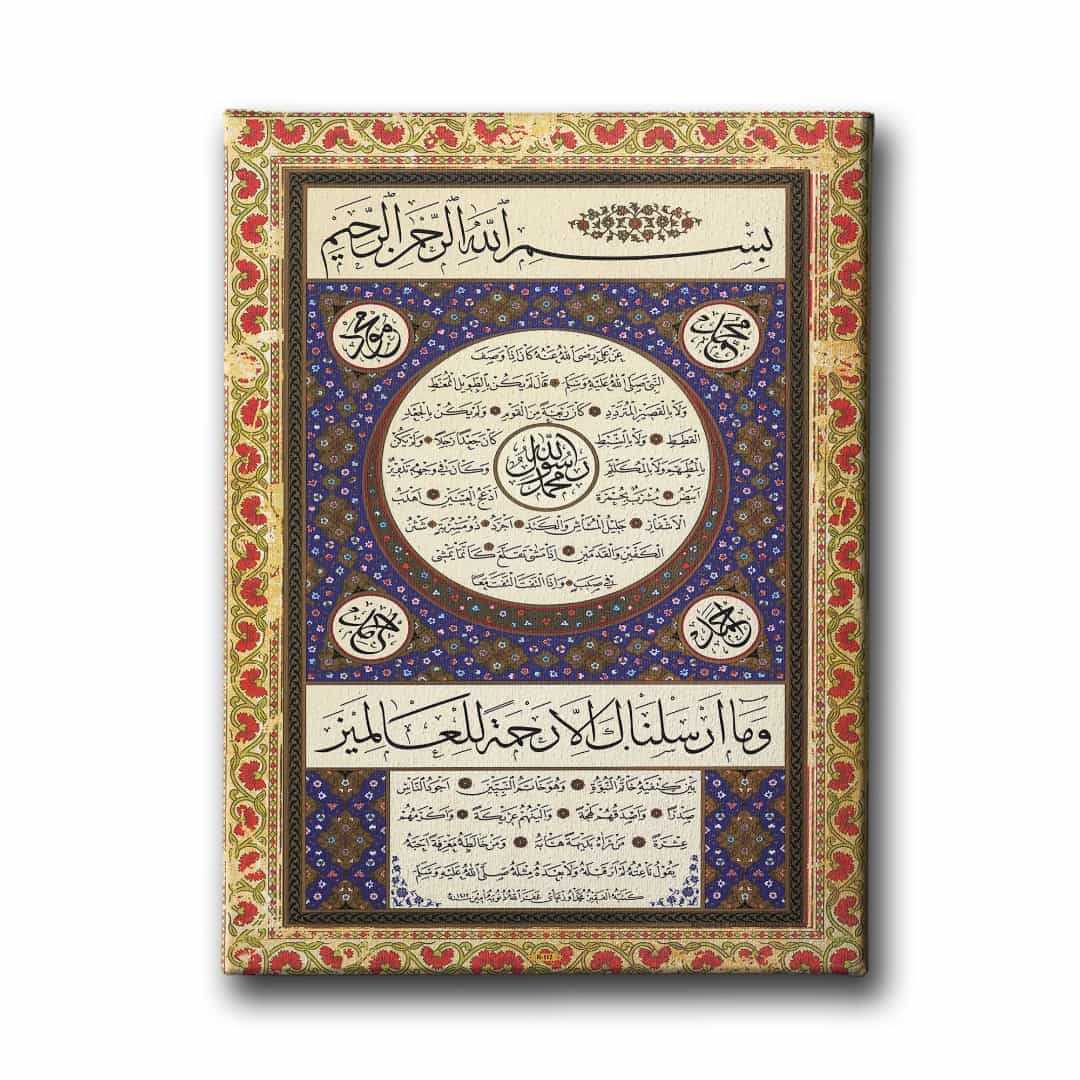 بسم الله الرحمن الرحيم
محمد
محمود
عن علي رضى الله عنه كان اذا وصف
النبي صلى الله عليه وسلم قال لم يكن بالطويل الممغط
ولا بالقصير المتردد كان ربعة من القوم ولم يكن بالجعد
القطط ولا بالسبط كان جعدا رجلا ولم يكن
محمد رسول الله
بالمطهم ولا بالمكلثم وكان في وجهه تدوير
ابيض مشرب بحمرة ادعج العينين اهدب
الاشفار جليل المشاش والكتد اجرد ذو مسربة شثن
الكفين والقدمين اذا مشى تقلع كانما يمشى
في صبب واذا التفت التفت معا
احمد
وما ارسلناك الا رحمة للعالمين
بين كتفيه خاتم النبوة وهو خاتم النبيين اجود الناس
صدرا واصدقهم لهجة والينهم عريكة واكرمهم
عشرة من رآه بديهة هابه ومن خالطه معرفة احبه
يقول ناعته لم ار قبله ولا بعده مثله صلى الله عليه وسلم
كتبه الفقير محمد اوزجاى غفر الله ذنوبه امين
R-112